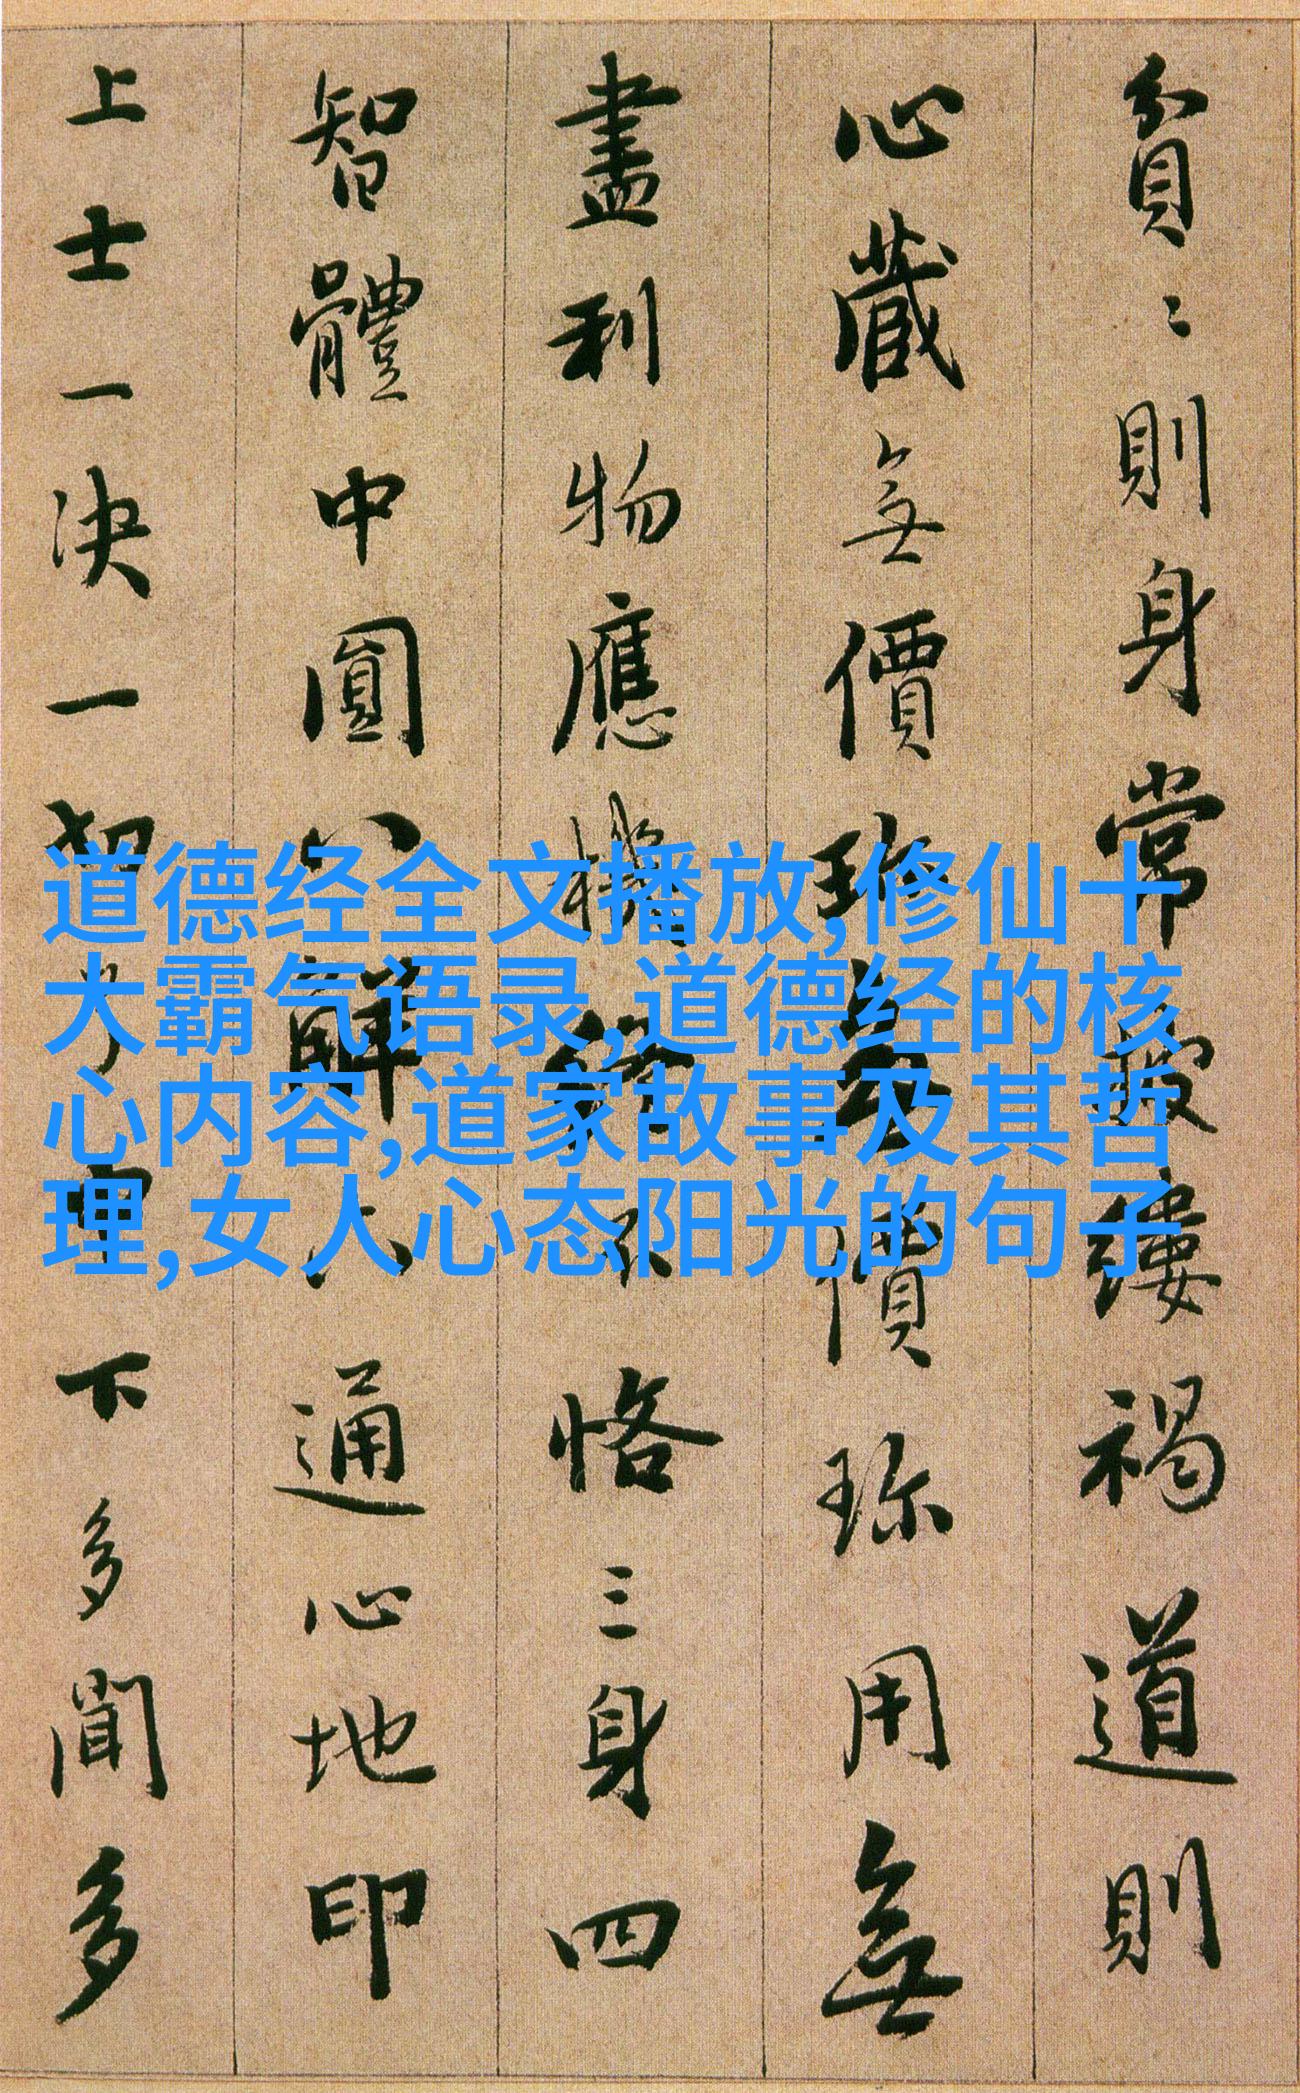 貧〻則身常披縷褐道則
心藏無價珎無價珎用無
盡利物應機終不恪三身四
智體中圓八解六通心地印
上士一决一切了中下多聞多
道德经全文播放,修仙十
大霸气语录,道德经的核
心内容,道家故事及其哲
理,女人心态阳光的句子